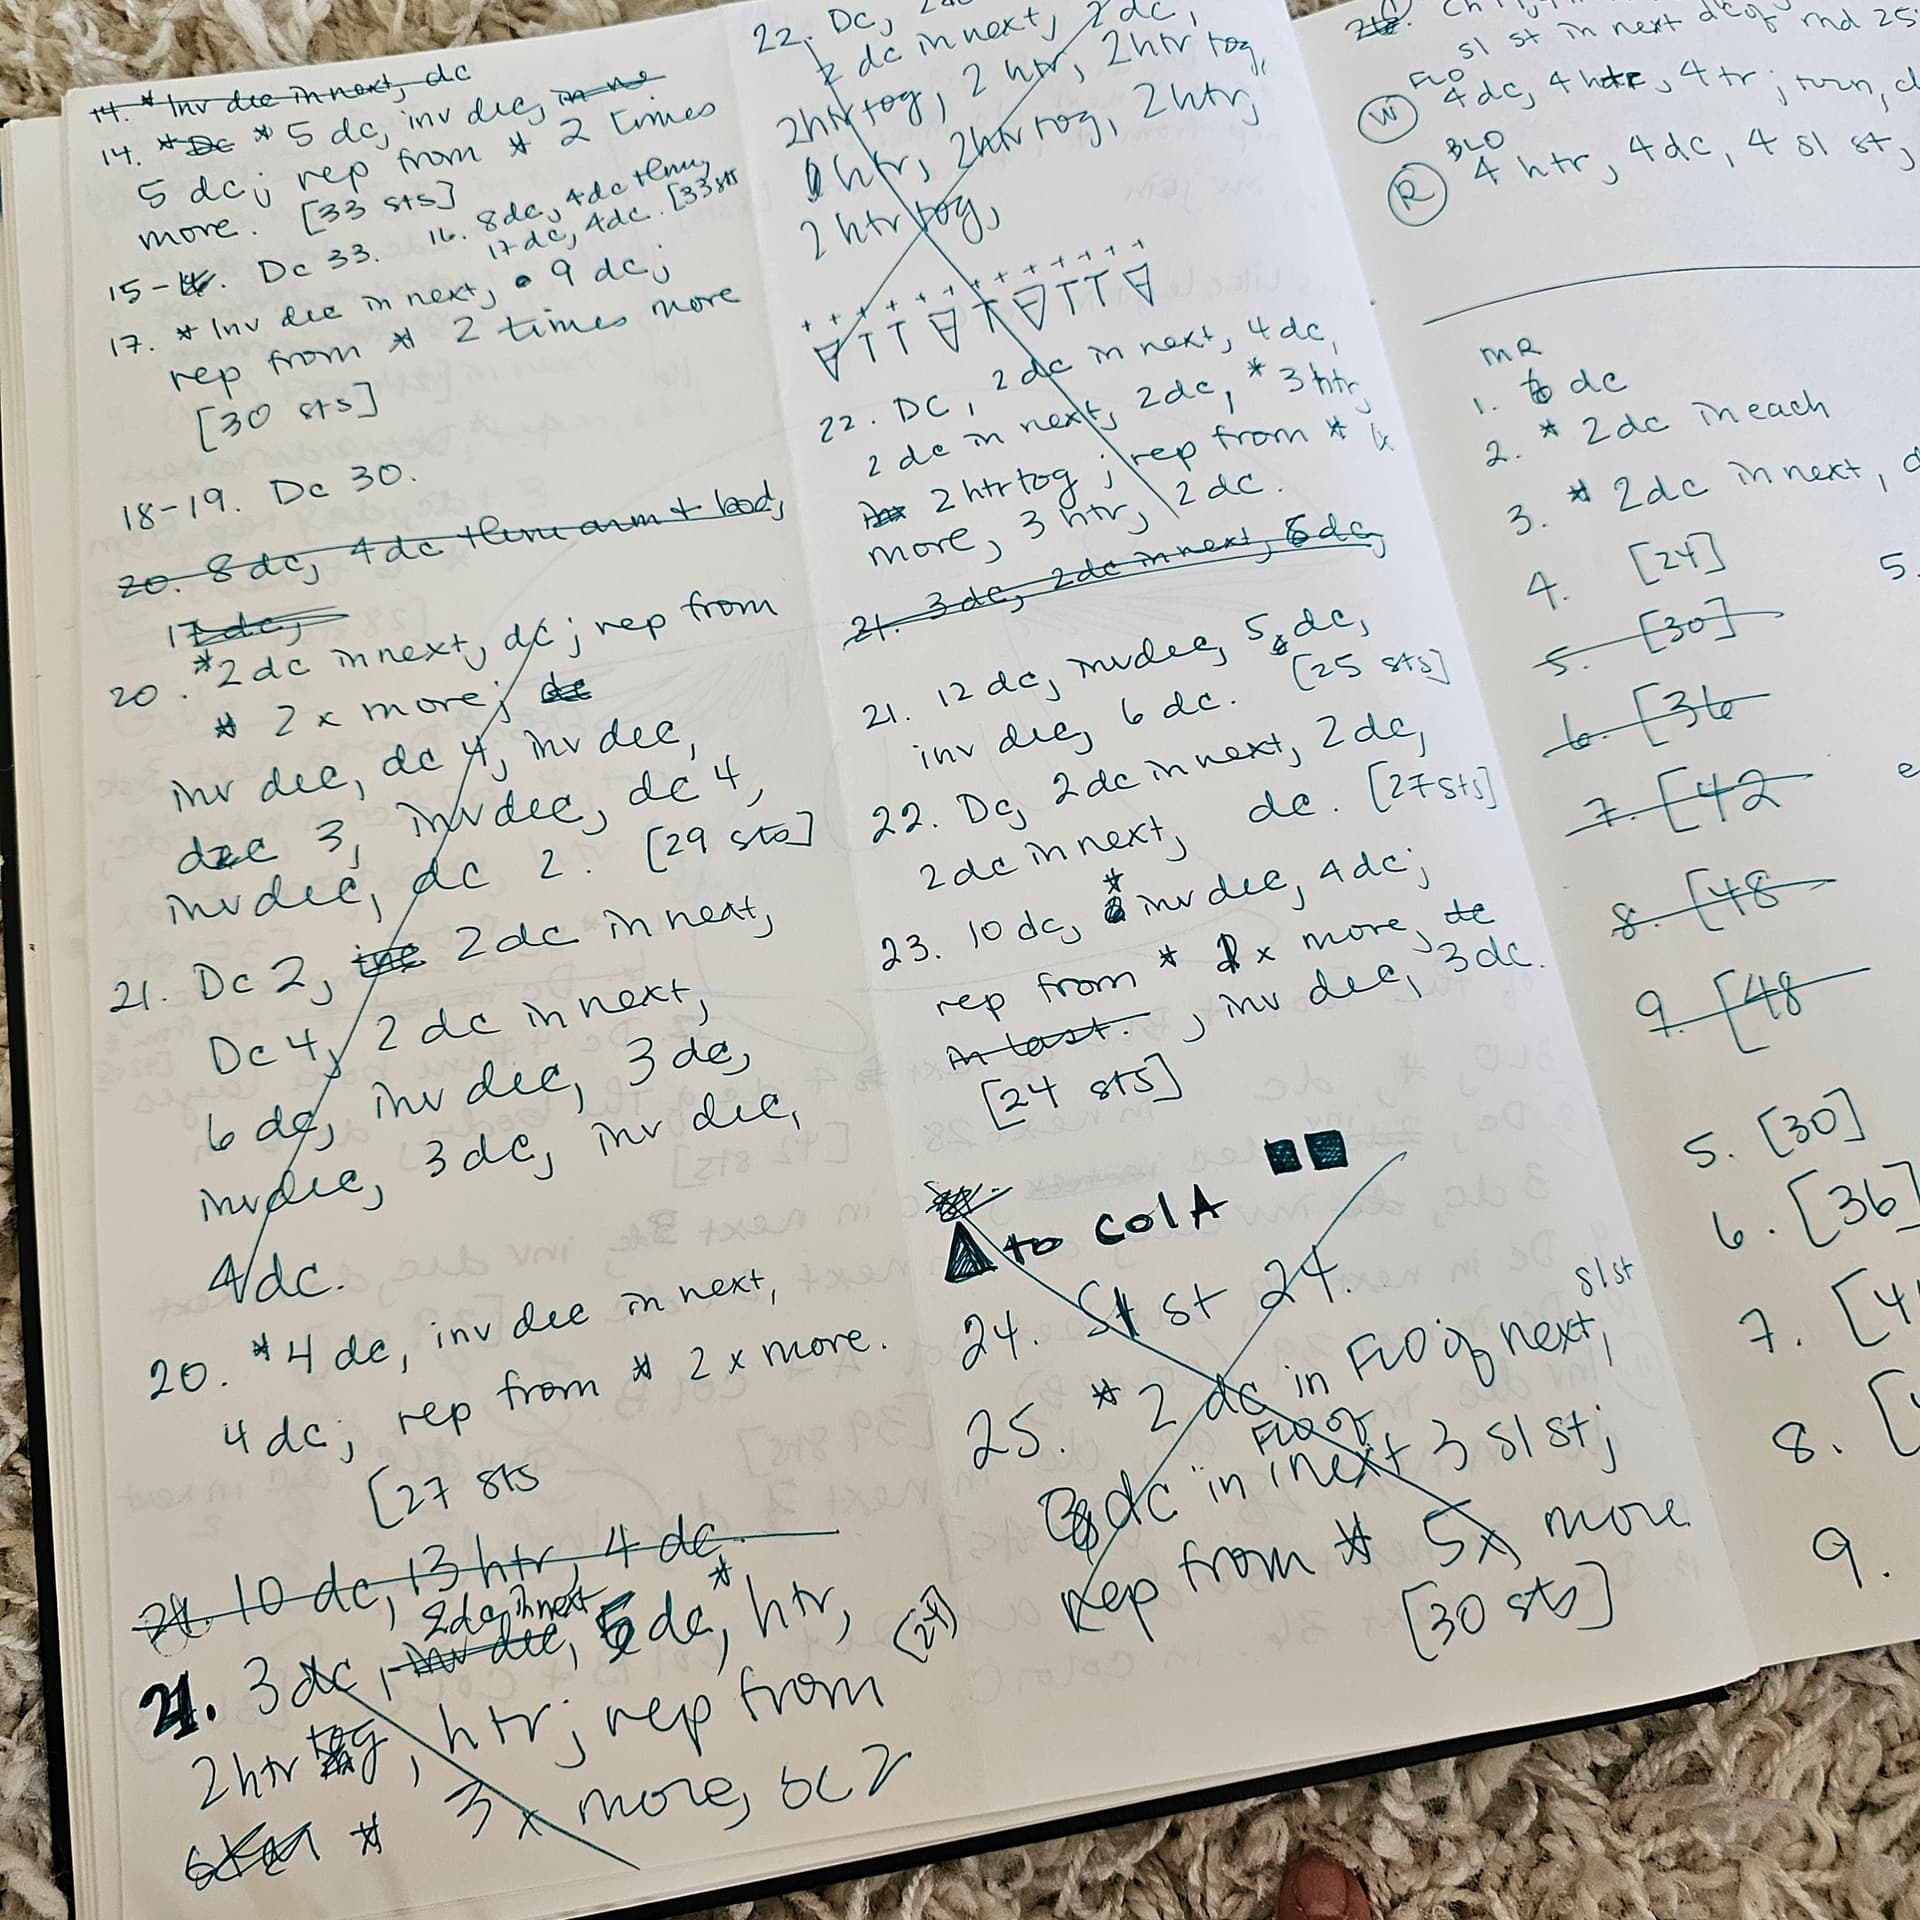 14. * Inv dec in next, dc
14. * Dc * 5 dc, inv dec, in ne
5 dc; rep from * 2 times
more. [33 sts]
15-16. Dc 33. 16. 8dc, 4dc thru,
17dc, 4dc. [33 sts
17. * Inv dec in next, 9 dc;
rep from * 2 times more
[30 sts]
18-19. Dc 30.
20. 8dc, 4dc thru arm + bod,
17 dc,
20. *2 dc in next, dc; rep from
* 2x more; dc
inv dec, dc 4, inv dec,
dc 3, inv dec, dc 4,
inv dec, dc 2. [29 sts]
21. Dc 2, inc 2dc in next,
Dc 4, 2 dc in next,
6 dc, inv dec, 3 dc,
inv dec, 3 dc, inv dec,
4 dc.
20. * 4 dc, inv dec in next,
4 dc; rep from * 2x more.
[27 sts
21. 10 dc, 13 htr, 4 dc.
2dc in next
21. 3 dc, inv dec, 5 dc, * htr, [24]
2 htr tog, htr; rep from
* 3x more, sc 2
22. Dc,
2 dc in next, 2 dc,
2htrtog, 2 htr, 2htr tog,
htr, 2htr tog, 2 htr,
2 htr tog,
+ + + + + + + + + + + + +
T T T T T T
22. DC, 2 dc in next, 4 dc,
2 dc in next, 2dc, * 3 htr,
2 htrtog; rep from *
more, 3 htr, 2 dc.
21. 3 dc, 2dc in next, 6 dc,
21. 12 dc, invdec, 5 dc,
inv dec, 6 dc. [25 sts]
22. Dc, 2dc in next, 2 dc,
2 dc in next, dc. [27 sts]
23. 10 dc, * inv dec, 4 dc;
rep from * 1 x more, dc
in last. , inv dec, 3 dc.
[24 sts]
to Col A
24. Sl st 24.
25. * 2 dc in FLO of next, sl st
FLO of
dc in next 3 sl st;
rep from * 5x more
[30 sts]
sl st in next dc of rnd 25
FLO
W 4 dc, 4 htr, 4 tr; turn,
BLO
R 4 htr, 4dc, 4 sl st,
MR
1. 6 dc
2. * 2dc in each
3. * 2dc in next,
4. [24] 5.
5. [30]
6. [36
7. [42
8. [48
9. [48
5. [30]
6. [36]
7. [4
8. [
9.